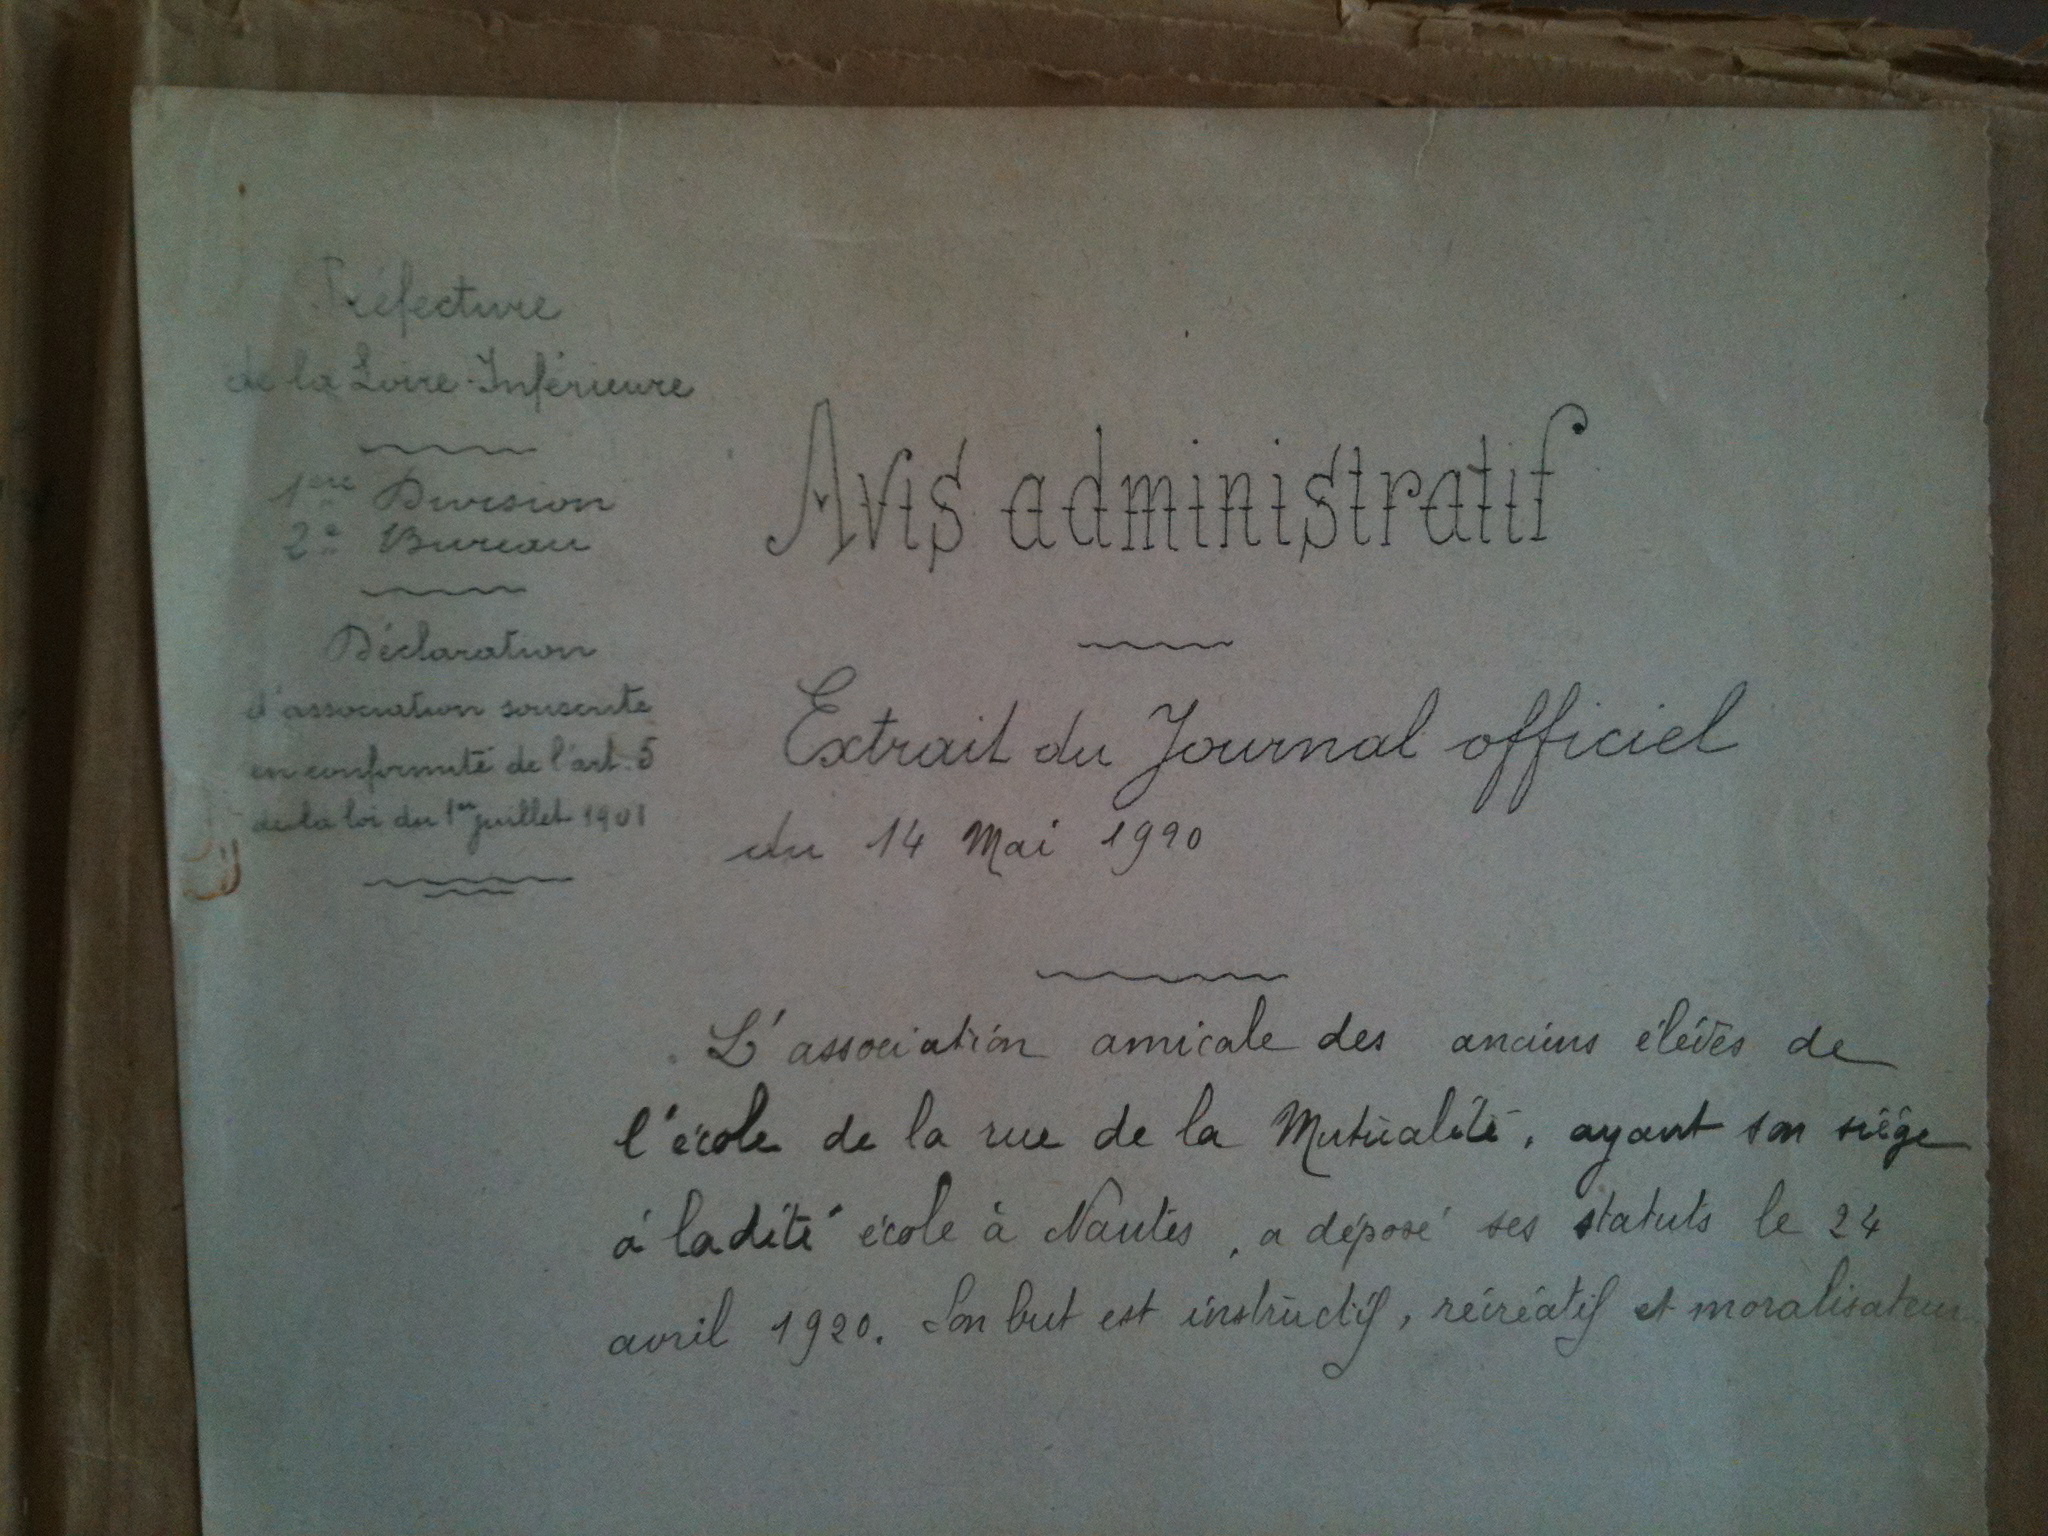 Préfecture
de la Loire-Inférieure
1ère Division
2e Bureau
Déclaration
d'association souscrite
en conformité de l'art. 5
de la loi du 1er juillet 1901
Avis administratif
Extrait du Journal officiel
du 14 Mai 1920
L'association amicale des anciens élèves de
l'école de la rue de la Mutualité, ayant son siège
à ladite école à Nantes, a déposé ses statuts le 24
avril 1920. Son but est instructif, récréatif et moralisateur.